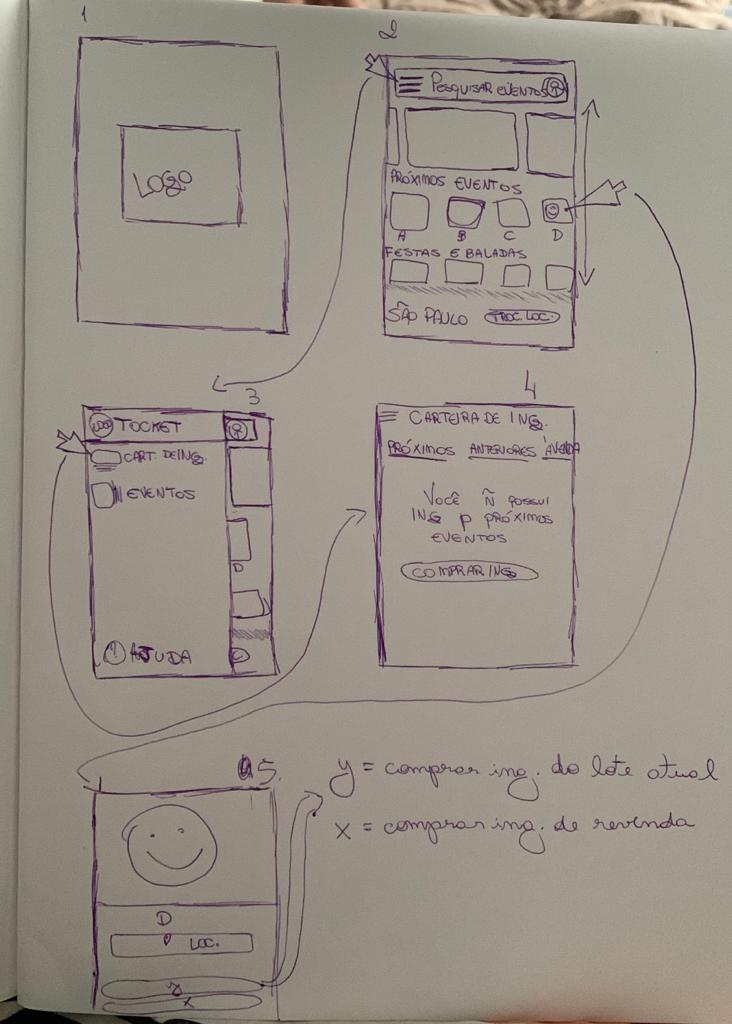 1
LOGO
2
PESQUISAR EVENTOS
PRÓXIMOS EVENTOS
A B C D
FESTAS E BALADAS
SÃO PAULO TROC. LOC.
3
LOGO TOCKET
CART. DE ING.
EVENTOS
D
! AJUDA
4
CARTEIRA DE ING.
PRÓXIMOS ANTERIORES À VENDA
VOCÊ Ñ POSSUI
ING P PRÓXIMOS
EVENTOS
COMPRAR ING
5.
D
LOC.
y
x
y = comprar ing. do lote atual
x = comprar ing. de revenda